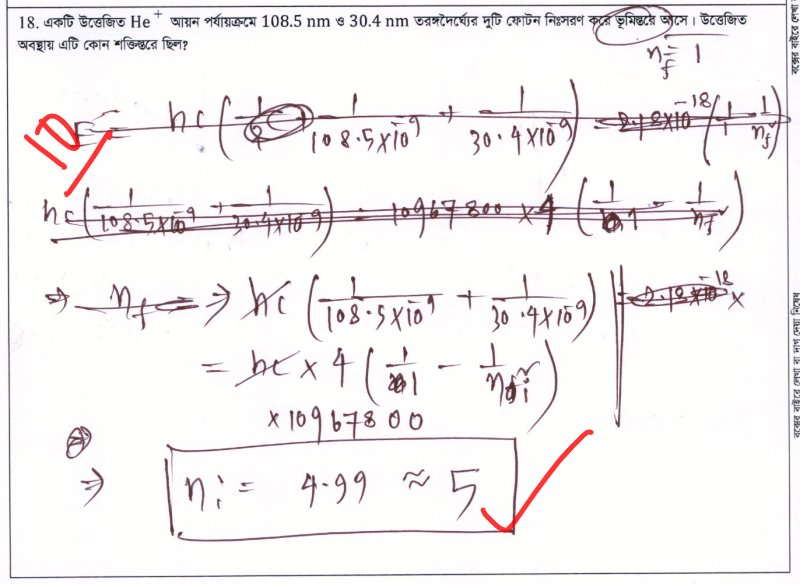 18. একটি উত্তেজিত He⁺ আয়ন পর্যায়ক্রমে 108.5 nm ও 30.4 nm তরঙ্গদৈর্ঘ্যের দুটি ফোটন নিঃসরণ করে ভূমিস্তরে আসে। উত্তেজিত
অবস্থায় এটি কোন শক্তিস্তরে ছিল?
n_f = 1
10
hc (1/(108.5×10⁻⁹) + 1/(30.4×10⁻⁹)) = 2.18×10⁻¹⁸ (1/1 - 1/n_f²)
hc (1/(108.5×10⁻⁹) + 1/(30.4×10⁻⁹)) = 10967800 × 4 (1/1 - 1/n_f²)
⇒ n_f = ⇒ hc (1/(108.5×10⁻⁹) + 1/(30.4×10⁻⁹)) = 2.18×10⁻¹⁸ ×
= hc × 4 (1/1 - 1/n_i²)
× 10967800
⇒ n_i = 4.99 ≈ 5